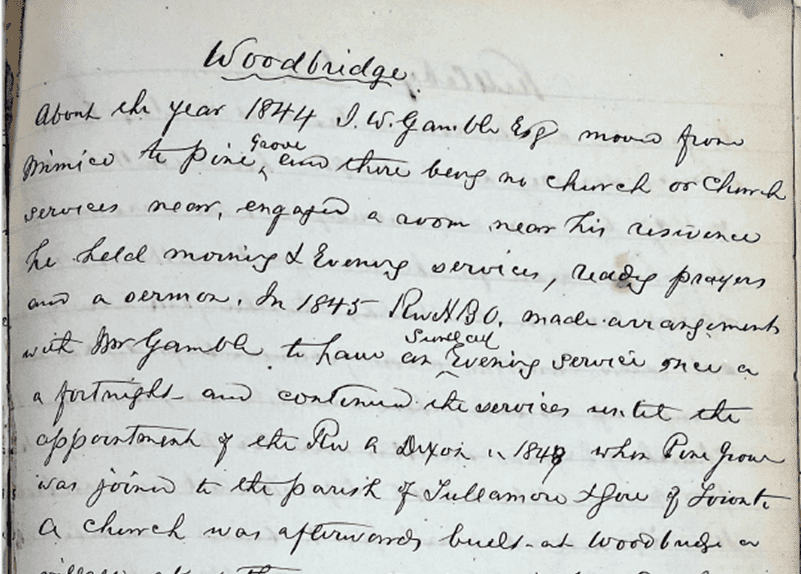 Woodbridge.
About the year 1844 J. W. Gamble Esq moved from
Mimico to Pine Grove and there being no church or church
services near, engaged a room near his residence
he held morning & Evening services, reading prayers
and a sermon. In 1845 Rev H B O. made arrangements
with Mr Gamble to have an Sunday Evening service once a
a fortnight and continued the services until the
appointment of the Rev A Dixon in 1848 when Pine Grove
was joined to the parish of Tullamore & Gore of Toronto
A church was afterwards built at Woodbridge a
village about the